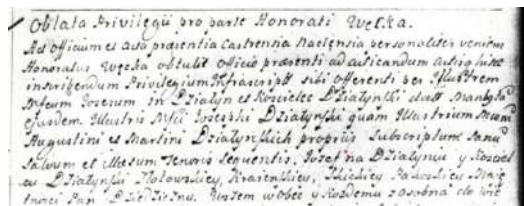 Oblata Privilegii pro parte Honorati Węcka.
Ad Officium et Acta præsentia Castrensia Naclensia personaliter veniens
Honoratus Węcka obtulit Officio præsenti ad acticandum
inscribendum Privilegium Infrascriptt sibi offerenti per Illustrem
Josephum in Działyn et Kościelec Działyński
ejusdem Illustris Josephi Działyński quam Illustrium
Augustini et Martini Działynskich propriis Subscriptum Manu
Salvum et illesum Tenoris sequentis. Jozef na Działyniu y Kosciel
cu Działynski Złotowskiey, Kraienskiey,
tnosci Pan Dziedziczny. Wszem wobec y Kozdemu zosobna